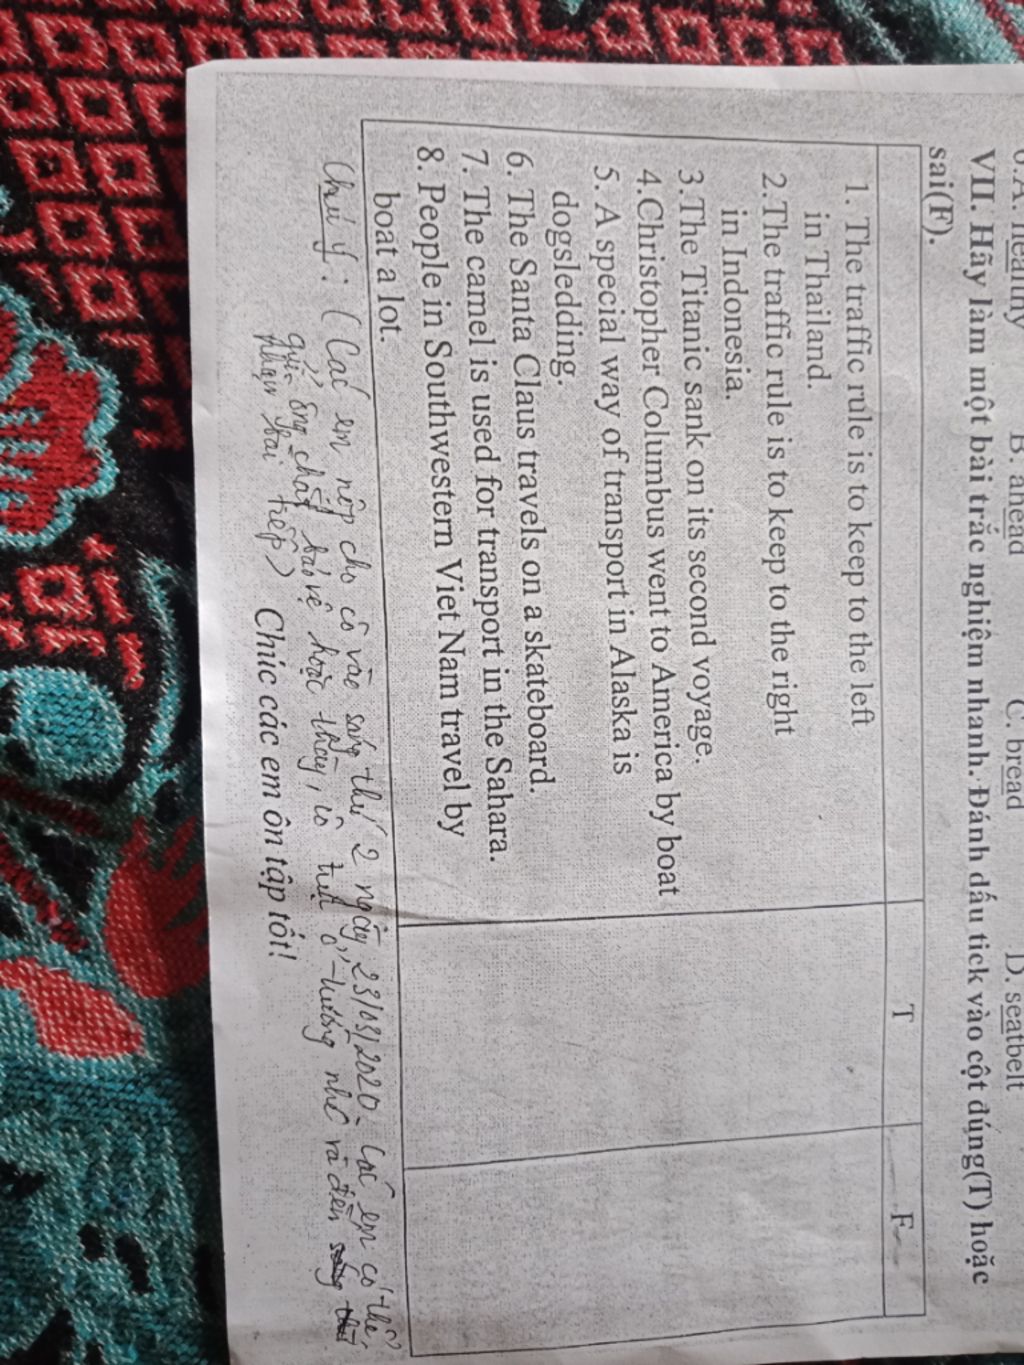 6.A. healthy B. ahead C. bread D. seatbelt
VII. Hãy làm một bài trắc nghiệm nhanh. Đánh dấu tick vào cột đúng(T) hoặc
sai(F).
T F
1. The traffic rule is to keep to the left
in Thailand.
2.The traffic rule is to keep to the right
in Indonesia.
3.The Titanic sank on its second voyage.
4.Christopher Columbus went to America by boat
5. A special way of transport in Alaska is
dogsledding.
6. The Santa Claus travels on a skateboard.
7. The camel is used for transport in the Sahara.
8. People in Southwestern Viet Nam travel by
boat a lot.
Chú ý: (Các em nộp cho cô vào sáng thứ 2 ngày 23/03/2020. Các em có thể
gửi ông chất bảo vệ hoặc thầy, cô trực ở trường nhé và đến
nhận bài tiếp) Chúc các em ôn tập tốt!